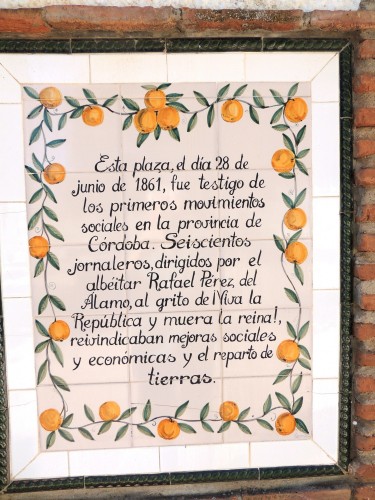 Esta plaza, el día 28 de
junio de 1861, fue testigo de
los primeros movimientos
sociales en la provincia de
Córdoba. Seiscientos
jornaleros, dirigidos por el
albéitar Rafael Pérez, del
Álamo, al grito de ¡Viva la
República y muera la reina!,
reivindicaban mejoras sociales
y económicas y el reparto de
tierras.